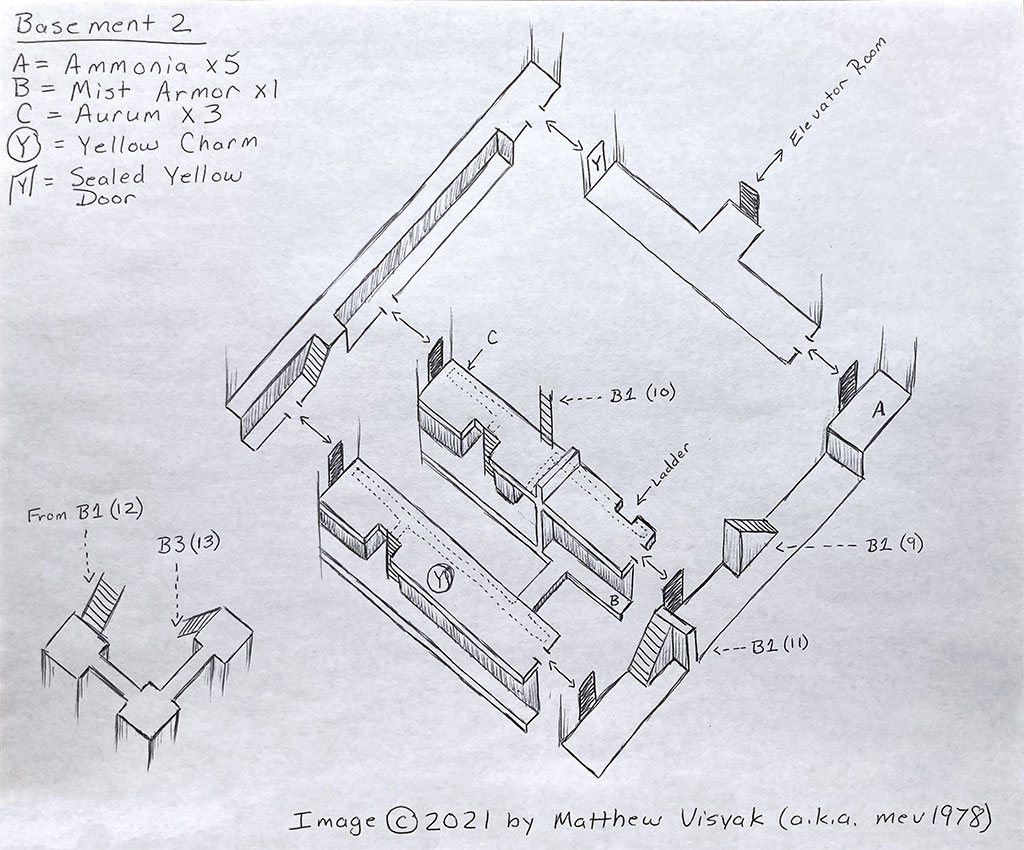 Basement 2
A = Ammonia x5
B = Mist Armor x1
C = Aurum x3
Y = Yellow Charm
Y = Sealed Yellow
Door
Elevator Room
Y
C
B1 (10)
A
Ladder
From B1 (12)
B3 (13)
B1 (9)
Y
B
B1 (11)
Image © 2021 by Matthew Visyak (a.k.a. mev1978)